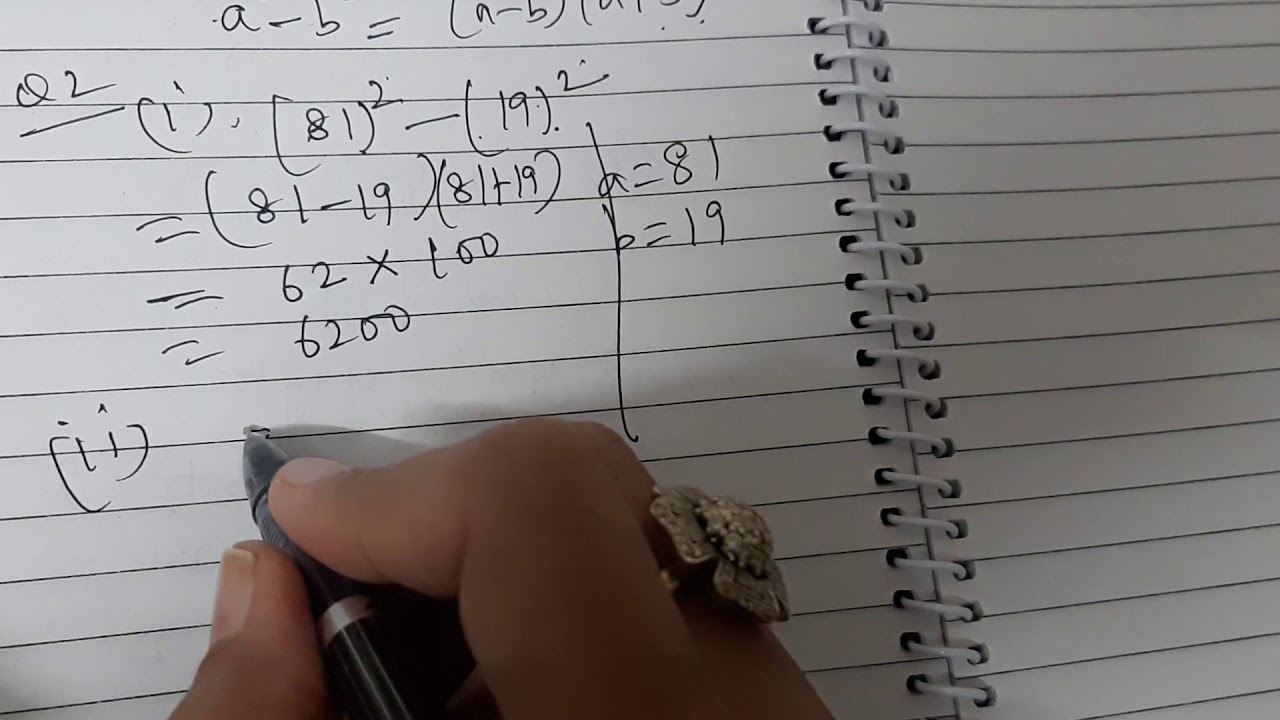 a - b = (a-b)(a
Q2 (i). (81)² - (19)²
= (81-19)(81+19) a=81
= 62 × 100 b=19
= 6200
(ii)